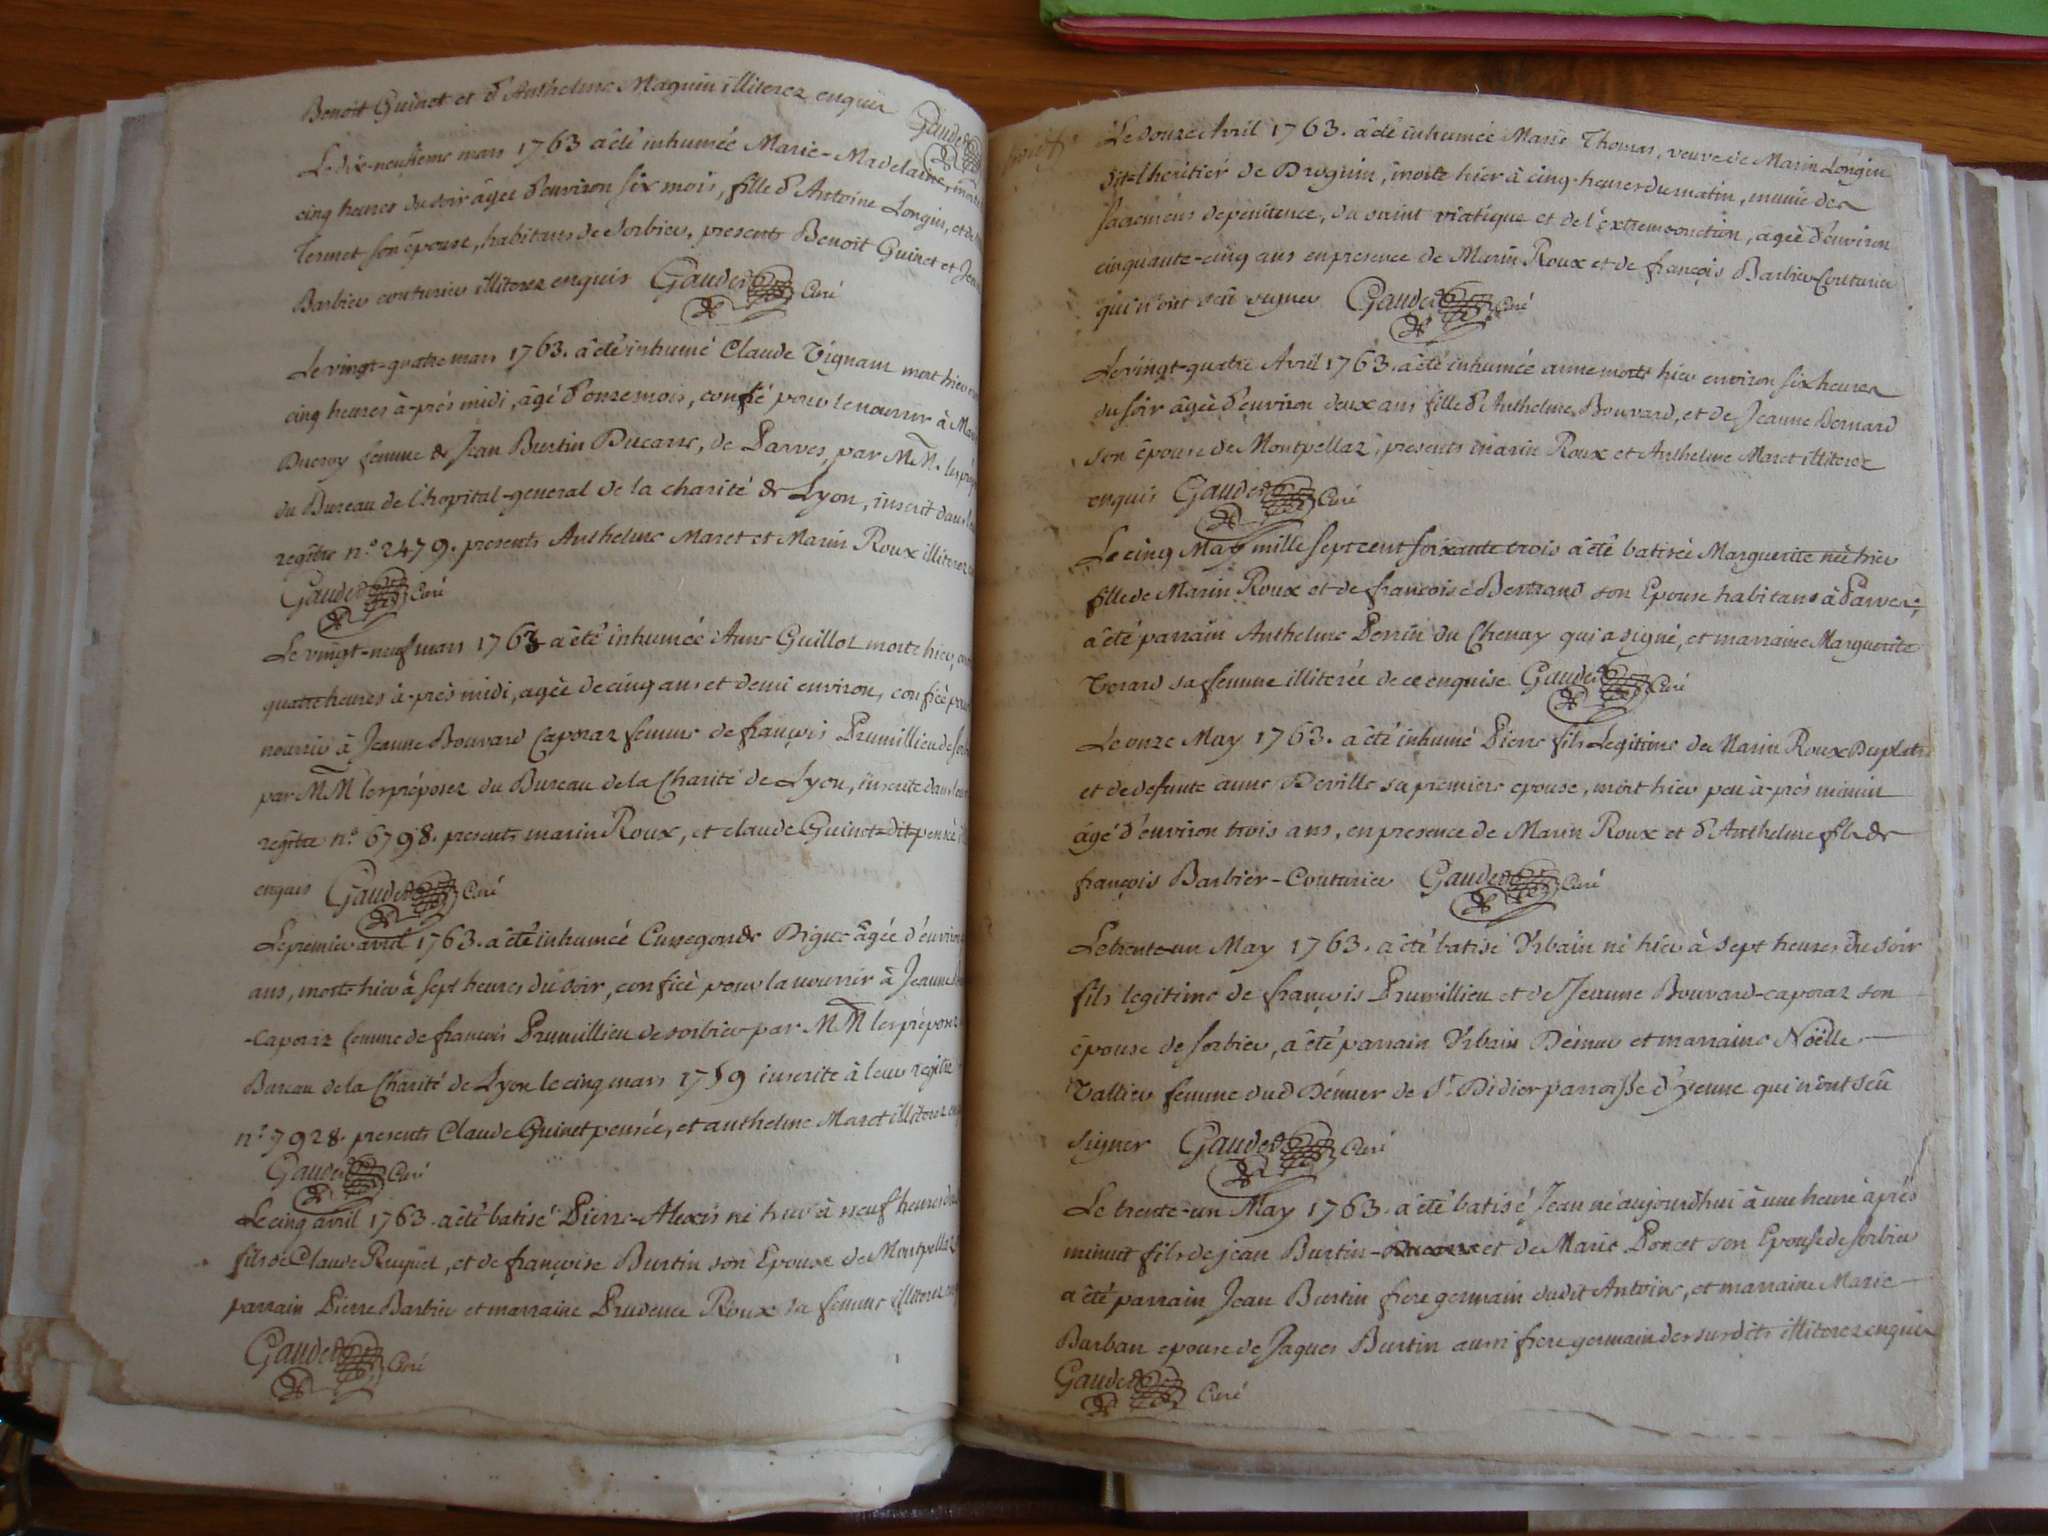 Benoit Guinet et d'Anthelme Maguin illiterez enquis
Gauder
Le dix-neufieme mars 1763 a été inhumée Marie-Madelaine, morte
cinq heures du soir âgée d'environ six mois, fille d'Antoine Longin, et de
Termet son épouse, habitans de Sorbier, presents Benoit Guinet et Jean
Barbier couturier illiterez enquis Gauder Curé
Le vingt-quatre mars 1763. a été inhumé Claude Vignam mort hier
cinq heures à-prés midi, âgé d'onze mois, confié pour le nourrir à Marie
Ducroy femme de Jean Burtin Ducarre, de Parves, par MM. les
du Bureau de l'hopital-general de la charité de Lyon, inscrit dans
regître n.º 2479. presents Anthelme Maret et Marin Roux illiterez
Gauder Curé
Le vingt-neuf mars 1763 a été inhumée Anne Guillot morte hier,
quatre heures à-près midi, agée de cinq ans et demi environ, confiée pour
nourrir à Jeanne Bouvard Caporaz femme de françois Prumillieu de
par MM les préposez du Bureau de la Charité de Lyon, inscrite dans
regître n.º 6798. presents marin Roux, et claude Guinet-dit-pensée
enquis Gauder Curé
Le premier avril 1763. a été inhumée Cunegonde Digne âgée d'environ
ans, morte hier à sept heures du soir, confiée pour la nourrir à Jeanne
-Caporaz femme de francois Prumillieu de sorbier par MM les préposez
Bureau de la Charité de Lyon le cinq mars 1759 inscrite à leur regître
n.º 7928. presents Claude Guinet pensée, et anthelme Maret illiterez
Gauder Curé
Le cinq avril 1763 a été batisé Pierre-Alexis né hier à neuf heures
fils de Claude Ruquet, et de françoise Burtin son Epouse de Montpellaz
parrain Pierre Barbier et marraine Prudence Roux sa femme illiterez
Gauder Curé
Le douze Avril 1763. a été inhumée Marie Thomas, veuve de Marin Longin
dit-l'heritier de Druguin, morte hier à cinq-heures du matin, munie des
sacremens de penitence, du saint viatique et de l'extremeonction, agée d'environ
cinquante-cinq ans en presence de Marin Roux et de françois Barbier Couturier
qui n'ont sçû signer Gauder Curé
Le vingt-quatre Avril 1763. a été inhumée anne morte hier environ six heures
du soir âgée d'environ deux ans fille d'Anthelme Bouvard, et de Jeanne Bernard
son épouse de Montpellaz, presents marin Roux et Anthelme Maret illiterez
enquis Gauder Curé
Le cinq May mille sept cent soixante trois a été batisée Marguerite née hier
fille de Marin Roux et de francoise Bertrand son Epouse habitans à Parves,
a été parrain Anthelme Perrin du Chenay qui a signé, et marraine Marguerite
Berard sa femme illiterée de ce enquise Gauder Curé
Le onze May 1763. a été inhumé Pierre fils Legitime de Marin Roux Duplatre
et de defunte anne Deville sa premiere epouse, mort hier peu à-prés minuit
âgé d'environ trois ans, en presence de Marin Roux et d'Anthelme fils de
françois Barbier-Couturier Gauder Curé
Le trente-un May 1763. a été batisé Vrbain né hier à sept heures du soir
fils legitime de françois Prumillieu et de Jeanne Bouvard-caporaz son
épouse de sorbier, a été parrain Vrbain Démur et marraine Noëlle
Vallier femme dud Démur de St Didier parroisse d'yenne qui n'ont sçû
signer Gauder Curé
Le trente-un May 1763. a été batisé Jean né aujourdhui à une heure après
minuit fils de jean Burtin-Ducarre et de Marie Poncet son Epouse de sorbier
a été parrain Jean Burtin frere germain dudit Antoine, et marraine Marie
Barban epouse de Jaques Burtin aussi frere germain des surdits illiterez enquis
Gauder Curé